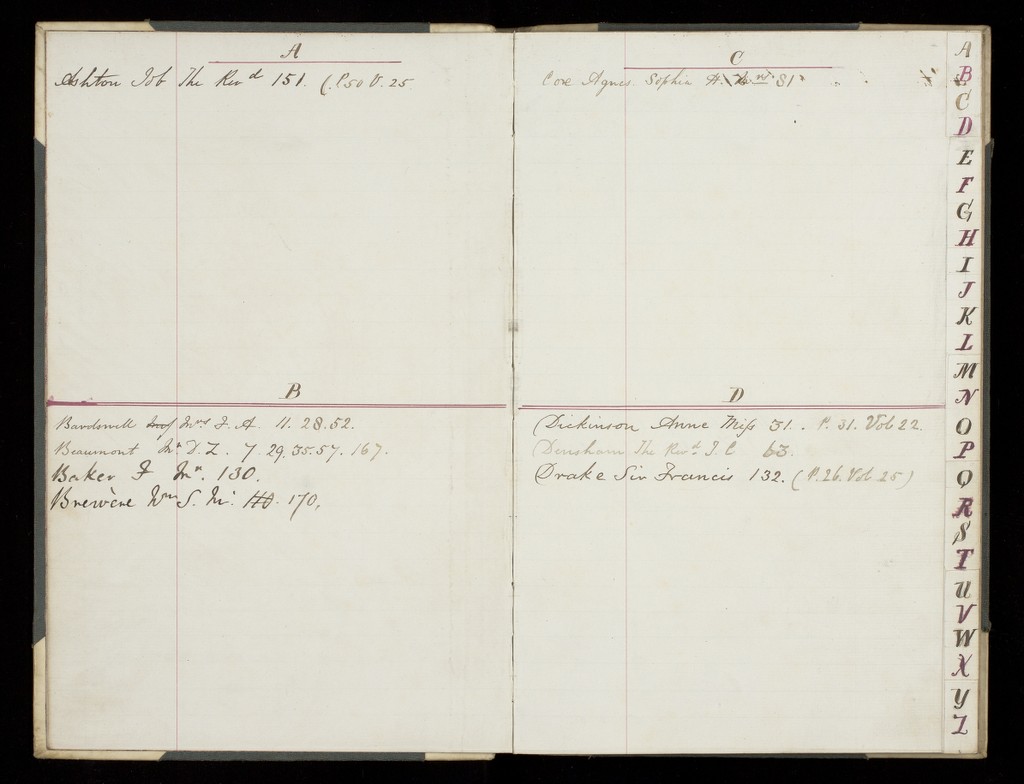 A
Ashton Job The Revd 151. (P. 50 V. 25
B
Bardswell Mrs F. A. 11. 28. 52.
Beaumont Mr D. Z. 7. 29. 35. 57. 167.
Baker F Mr. 130.
Brewère Wm S. Mr. 170.
C
Core Agnes Sophia H. 81
D
Dickinson Anne Miss 51. P. 31. Vol 22.
Densham The Revd J. C 63.
Drake Sir Francis 132. (P. 26. Vol. 25)
A
B
C
D
E
F
G
H
I
J
K
L
M
N
O
P
Q
R
S
T
U
V
W
X
Y
Z